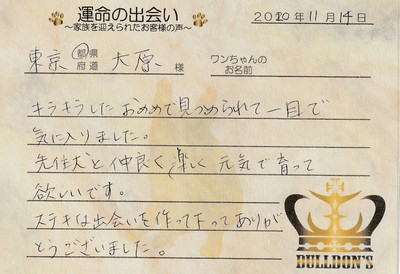 運命の出会い
～家族を迎えられたお客様の声～
2020年11月14日
東京 都道府県 大原 様
ワンちゃんの
お名前
キラキラしたおめめで見つめられて一目で
気に入りました。
先住犬と仲良く楽しく元気で育って
欲しいです。
ステキな出会いを作って下ってありが
とうございました。
BULLDON'S